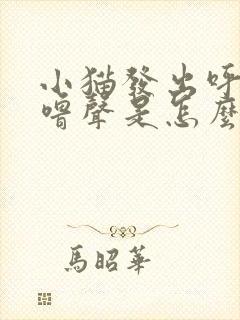 小猫發出呼
嚕聲是怎麼
馬昭華